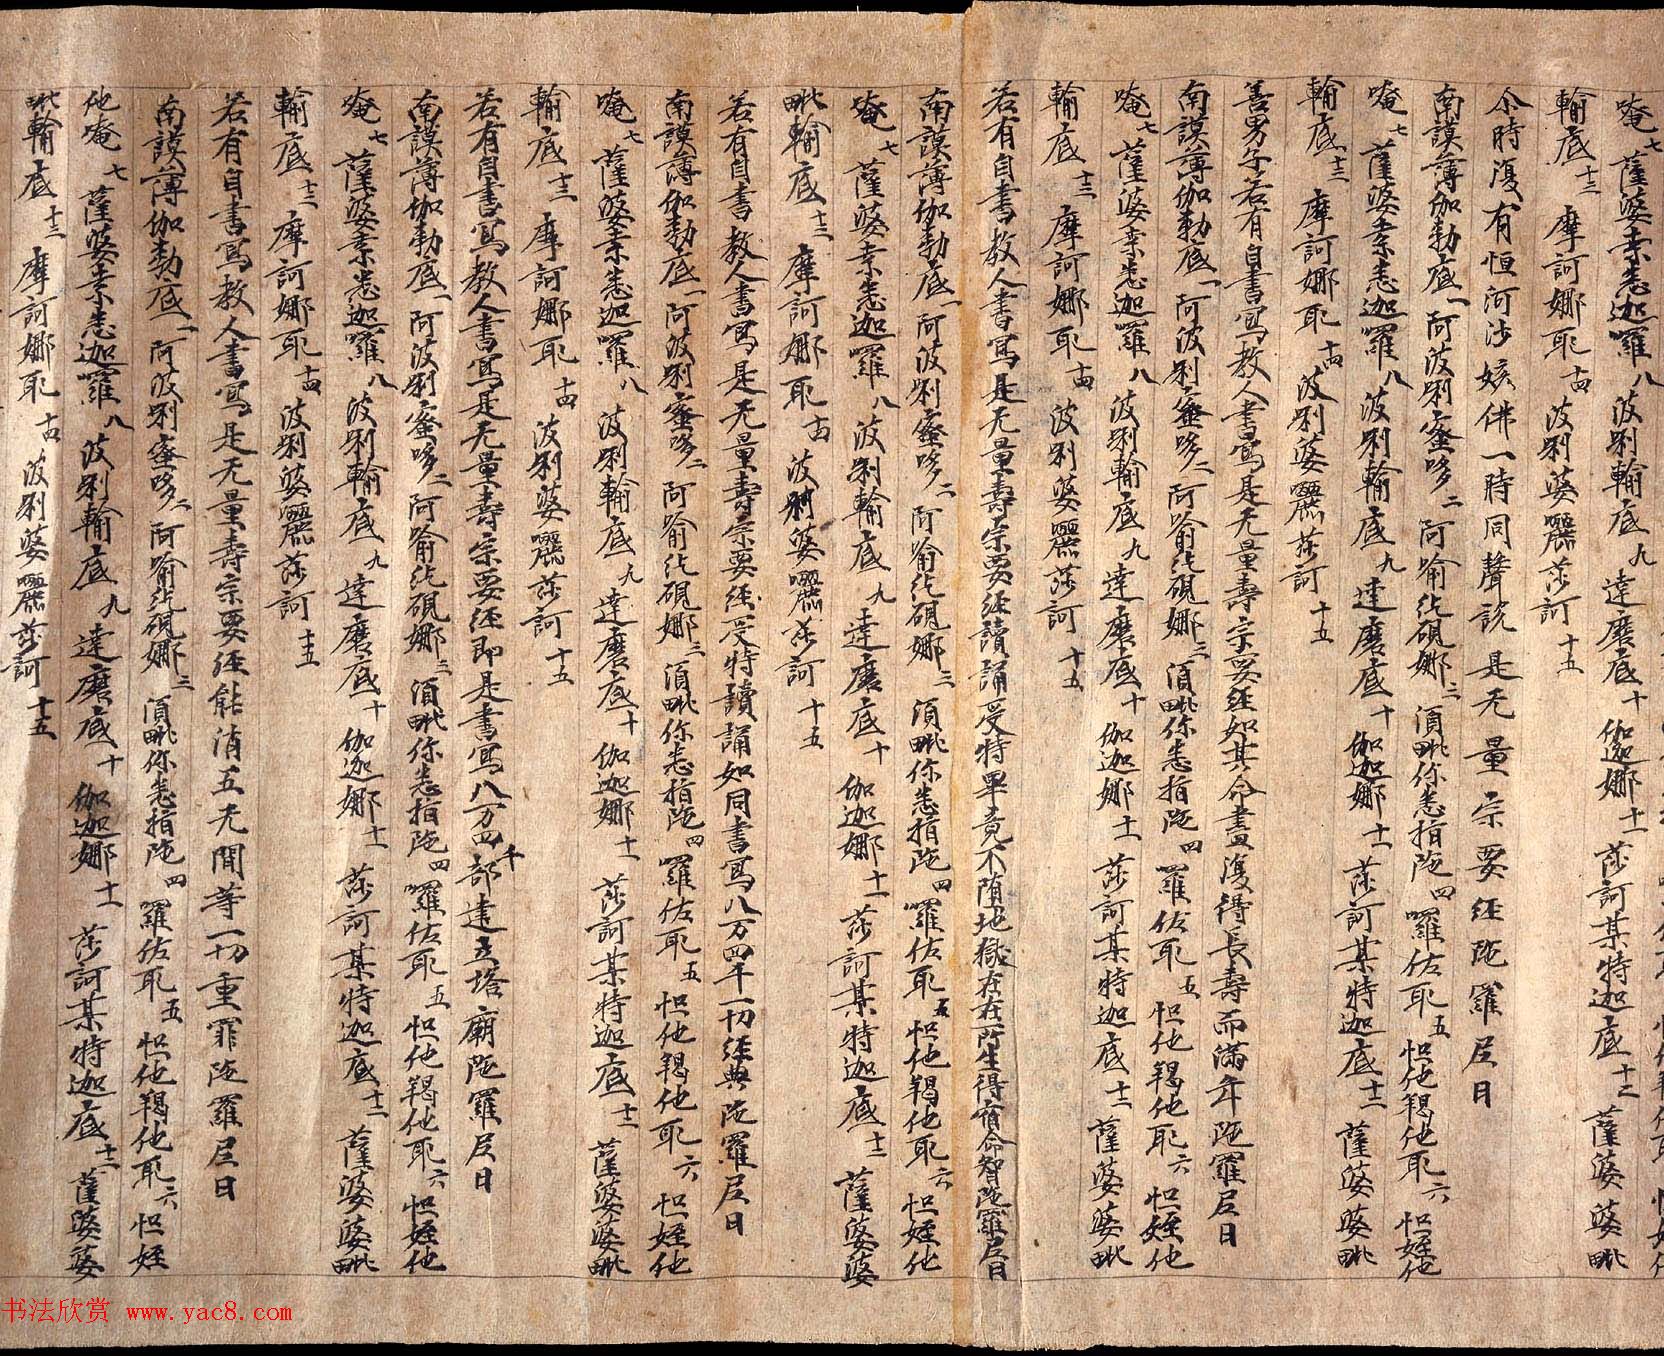 唵七 薩婆桒悉迦羅八 波唎輸底九 達磨底十 伽迦娜十一 莎訶某特迦底十二 薩婆婆毗
輸底十三 摩訶娜耶十四 波唎婆囇莎訶十五
尒時復有恒河沙姟佛一時同聲說是无量宗要經陁羅尼曰
南謨薄伽勃底一 阿波唎蜜哆二 阿喻紇硯娜三 湏毗你悉指陁四 羅佐耶五 怛他羯他耶六 怛姪他
唵七 薩婆桒悉迦羅八 波唎輸底九 達磨底十 伽迦娜十一 莎訶某特迦底十二 薩婆婆毗
輸底十三 摩訶娜耶十四 波唎婆囇莎訶十五
善男子若有自書寫教人書寫是无量壽宗要經如其命盡復得長壽而滿年陁羅尼曰
南謨薄伽勃底一 阿波唎蜜哆二 阿喻紇硯娜三 湏毗你悉指陁四 羅佐耶五 怛他羯他耶六 怛姪他
唵七 薩婆桒悉迦羅八 波唎輸底九 達磨底十 伽迦娜十一 莎訶某特迦底十二 薩婆婆毗
輸底十三 摩訶娜耶十四 波唎婆囇莎訶十五
若有自書教人書寫是无量壽宗要經讀誦受持畢竟不墮地獄在在所生得宿命智陁羅尼曰
南謨薄伽勃底一 阿波唎蜜哆二 阿喻紇硯娜三 湏毗你悉指陁四 羅佐耶五 怛他羯他耶六 怛姪他
唵七 薩婆桒悉迦羅八 波唎輸底九 達磨底十 伽迦娜十一 莎訶某特迦底十二 薩婆婆
毗輸底十三 摩訶娜耶十四 波唎婆囇莎訶十五
若有自書教人書寫是无量壽宗要經受持讀誦如同書寫八万四千一切經典陁羅尼曰
南謨薄伽勃底一 阿波唎蜜哆二 阿喻紇硯娜三 湏毗你悉指陁四 羅佐耶五 怛他羯他耶六 怛姪他
唵七 薩婆桒悉迦羅八 波唎輸底九 達磨底十 伽迦娜十一 莎訶某特迦底十二 薩婆婆毗
輸底十三 摩訶娜耶十四 波唎婆囇莎訶十五
若有自書寫教人書寫是无量壽宗要經即是書寫八万四千部建立塔廟陁羅尼曰
南謨薄伽勃底一 阿波唎蜜哆二 阿喻紇硯娜三 湏毗你悉指陁四 羅佐耶五 怛他羯他耶六 怛姪他
唵七 薩婆桒悉迦羅八 波唎輸底九 達磨底十 伽迦娜十一 莎訶某特迦底十二 薩婆婆毗
輸底十三 摩訶娜耶十四 波唎婆囇莎訶十五
若有自書寫教人書寫是无量壽宗要經能消五无間等一切重罪陁羅尼曰
南謨薄伽勃底一 阿波唎蜜哆二 阿喻紇硯娜三 湏毗你悉指陁四 羅佐耶五 怛他羯他耶六 怛姪
他唵七 薩婆桒悉迦羅八 波唎輸底九 達磨底十 伽迦娜十一 莎訶某特迦底十二 薩婆婆
毗輸底十三 摩訶娜耶十四 波唎婆囇莎訶十五
书法欣赏 www.yac8.com